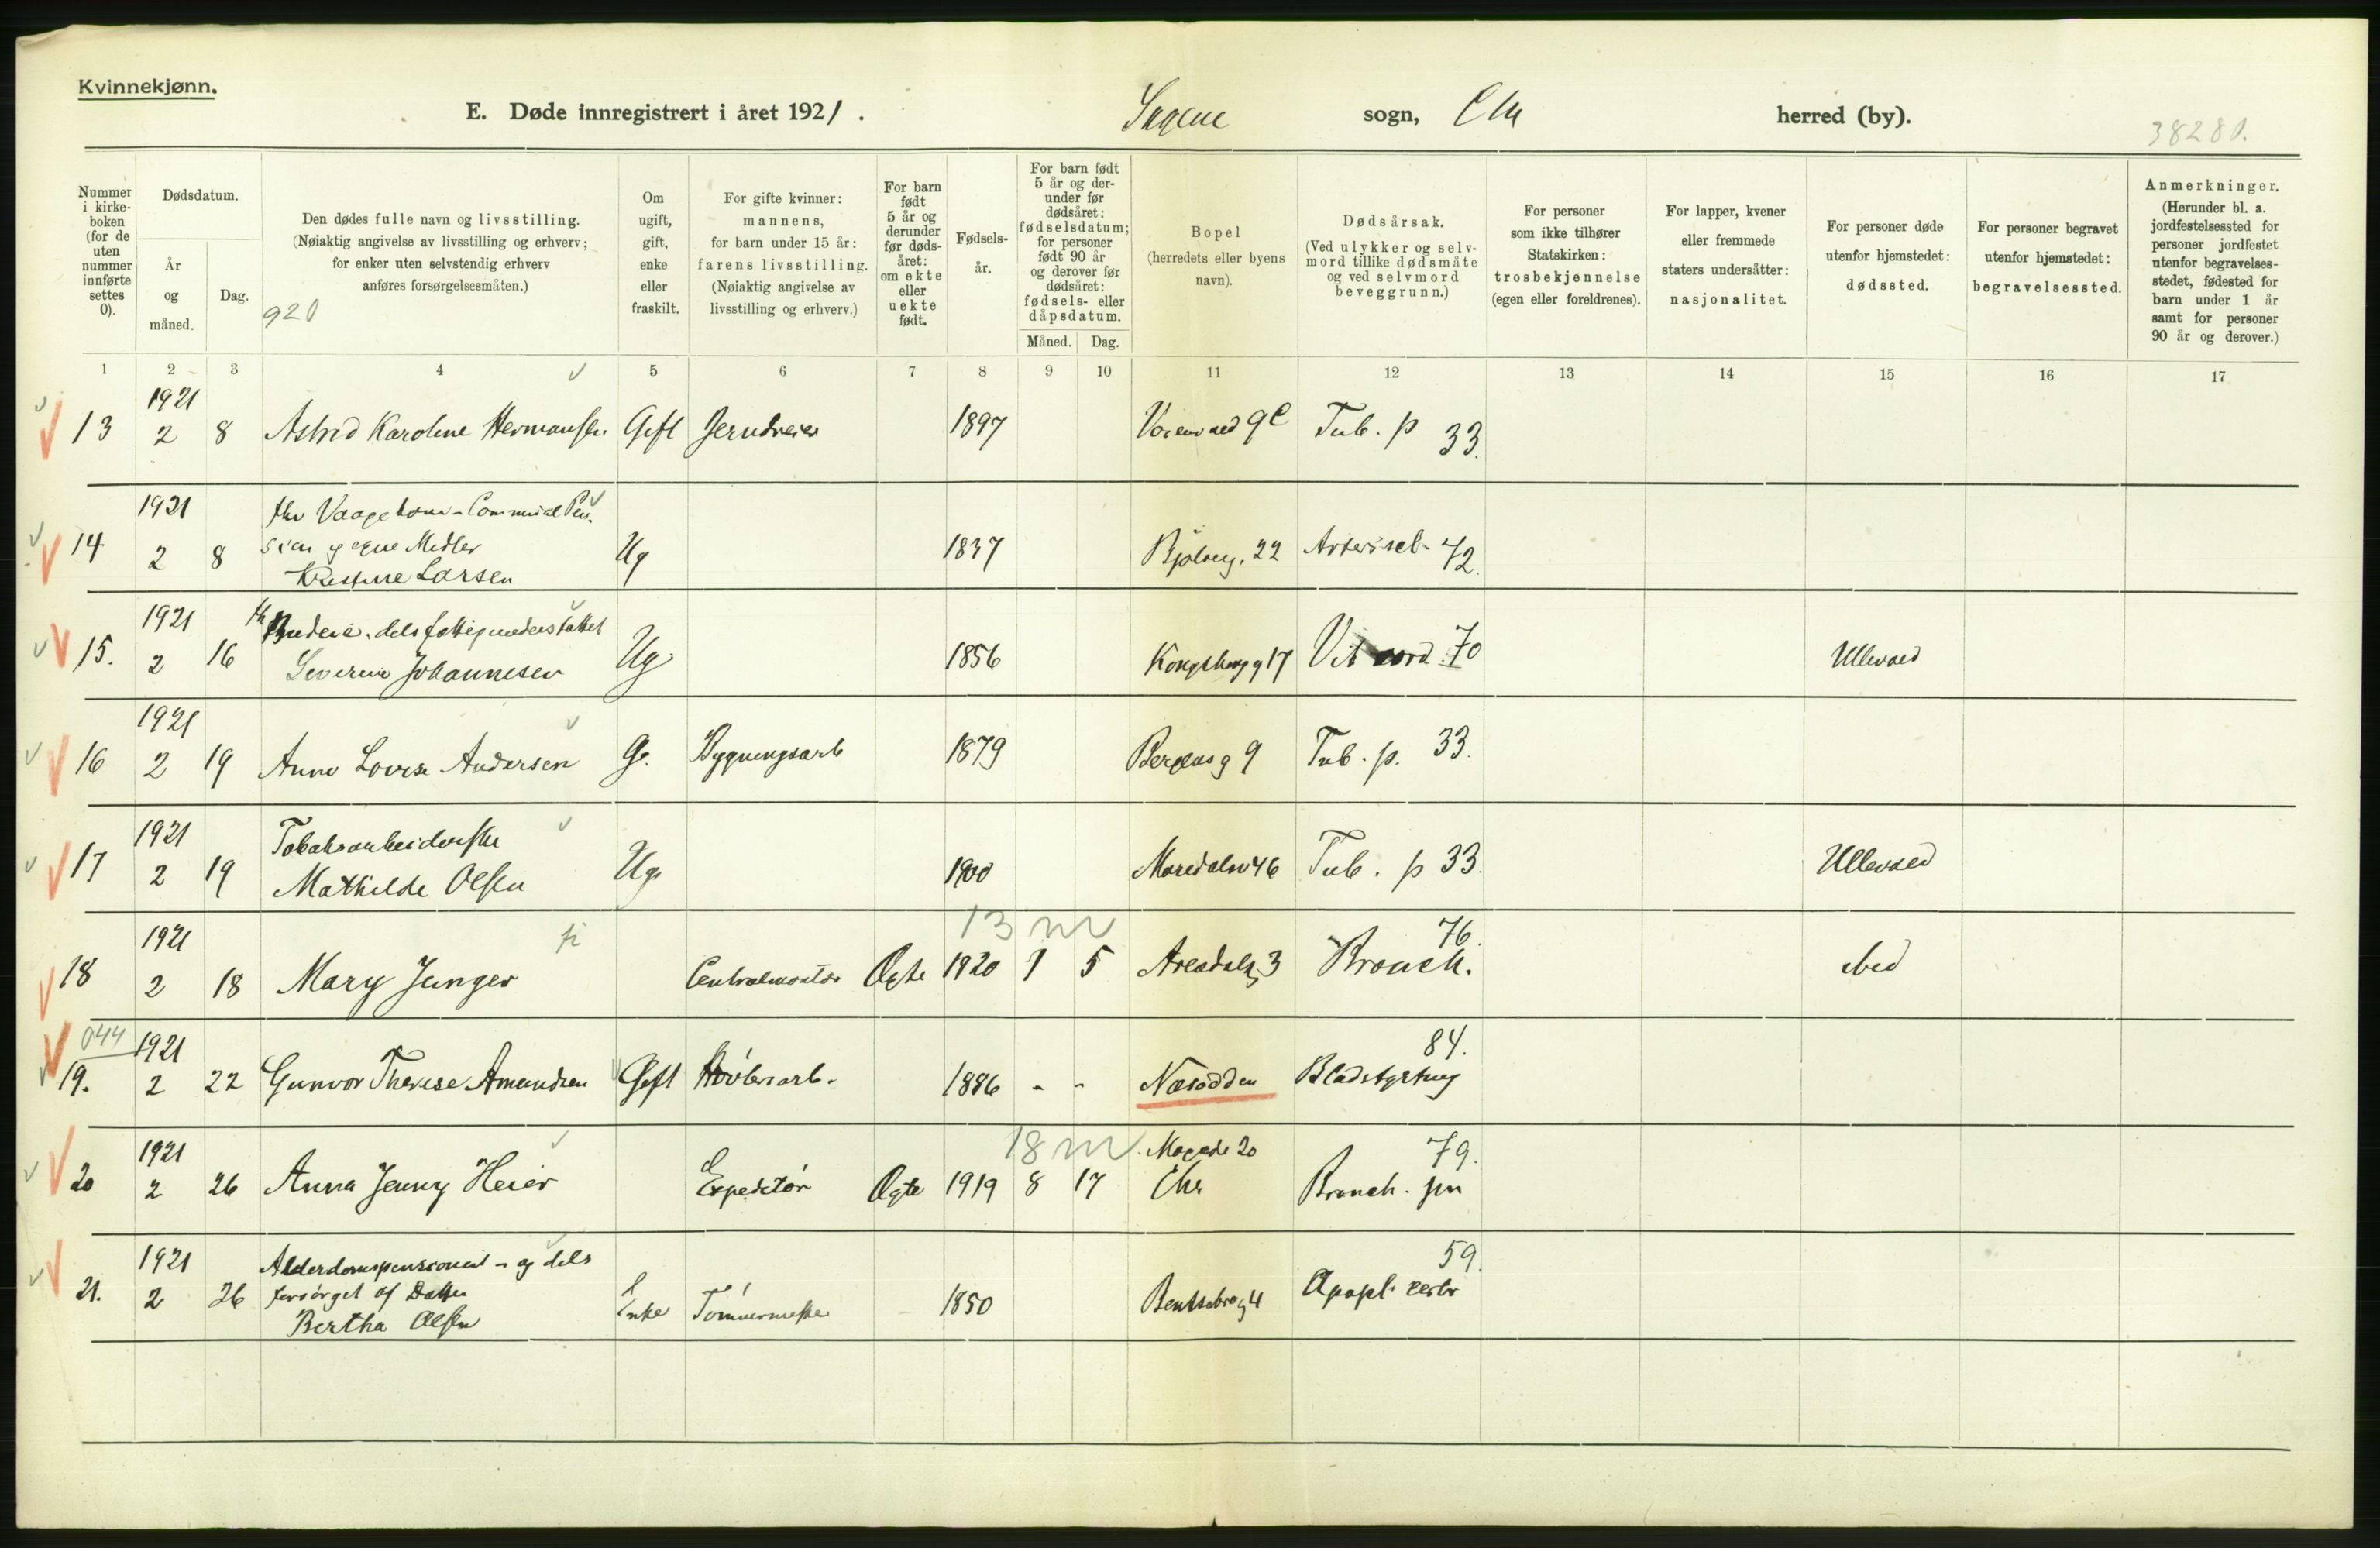 Kvinnekjønn.
E. Døde innregistrert i året 1921. Sagene sogn, Chr herred (by).
38280.
Nummer i kirkeboken (for de uten nummer innførte settes 0).
Dødsdatum.
År og måned.
Dag.
Den dødes fulle navn og livsstilling.
(Nøiaktig angivelse av livsstilling og erhverv;
for enker uten selvstendig erhverv
anføres forsørgelsesmåten.)
920
Om ugift, gift, enke eller fraskilt.
For gifte kvinner: mannens, for barn under 15 år: farens livsstilling. (Nøiaktig angivelse av livsstilling og erhverv.)
For barn født 5 år og derunder før dødsåret: om ekte eller uekte født.
Fødselsår.
For barn født 5 år og derunder før dødsåret: fødselsdatum; for personer født 90 år og derover før dødsåret: fødsels- eller dåpsdatum.
Måned. Dag.
Bopel (herredets eller byens navn).
Dødsårsak. (Ved ulykker og selvmord tillike dødsmåte og ved selvmord beveggrunn.)
For personer som ikke tilhører Statskirken: trosbekjennelse (egen eller foreldrenes).
For lapper, kvener eller fremmede staters undersåtter: nasjonalitet.
For personer døde utenfor hjemstedet: dødssted.
For personer begravet utenfor hjemstedet: begravelsessted.
Anmerkninger. (Herunder bl. a. jordfestelsessted for personer jordfestet utenfor begravelsesstedet, fødested for barn under 1 år samt for personer 90 år og derover.)
1 2 3 4 5 6 7 8 9 10 11 12 13 14 15 16 17
1921
13 2 8 Astrid Karoline Hermansen Gift Jerndreier 1897 9c Tub. p 33.
1921
14 2 8 og egne Midler Ug 1837 22 72.
Kristine Larsen
1921
dels fattigunderstøttet
15. 2 16 Severine Johannesen Ug. 1856 Kongsbergg 17 Vit cord 70 Ullevaal
1921
16 2 19 Anne Lovise Andersen G. Bygningsarb 1879 Bergensg 9 Tub. p. 33.
1921 Tobaksarbeiderske
17 2 19 Mathilde Olsen Ug. 1900 Maridalsv 46 Tub. p 33. Ullevaal
1921 13 m 76.
18 2 18 Mary Junger Centralmontør Ægte 1920 1 5 Arendalsg 3 Bronch. ibid
044 1921 84.
19. 2 22 Gunvor Therese Amundsen Gift Høvleriarb. 1886 - - Næsodden Blodstyrtning
1921 18 m Mogata 20 79.
20 2 26 Anna Jenny Heier Expeditør Ægte 1919 8 17 Chr Bronch. pn
1921 Alderdomspensionist - og dels 59.
21. 2 26 forsørget af Datter Enke Tømmermester 1850 Bentsebrog 4 Apopl. cerbr
Bertha Olsen